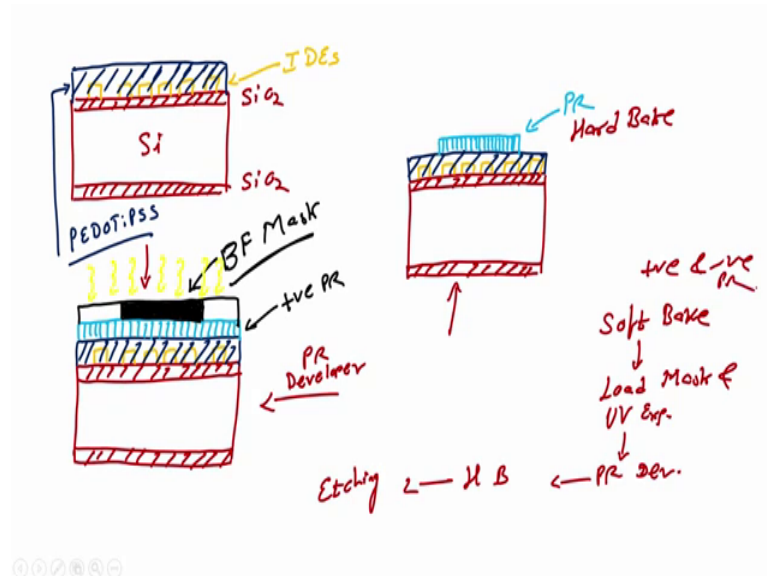 IDEs
SiO2
Si
SiO2
PEDOT:PSS
BF Mask
+ve PR
PR
Developer
PR
Hard Bake
+ve & -ve
PR
Soft Bake
Load Mask &
UV Exp.
PR Dev.
H B
Etching